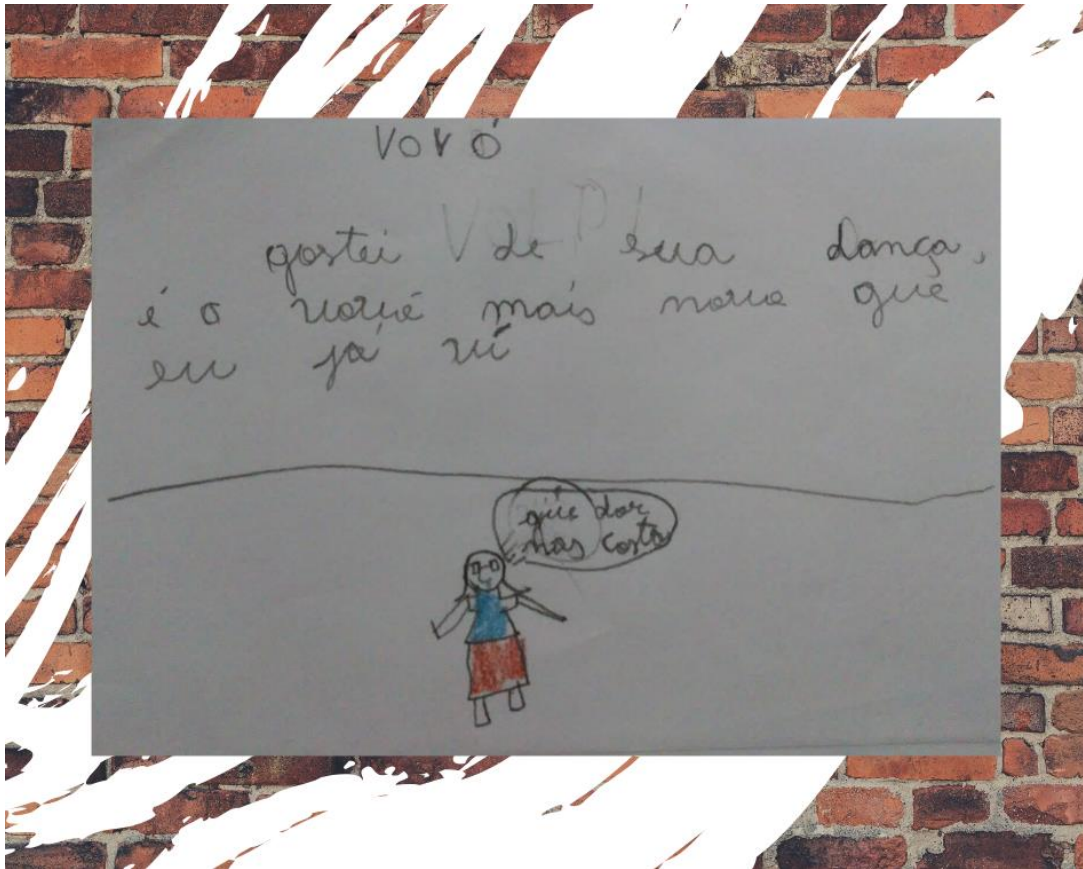 VOVÓ
gostei de sua dança,
é o vovó mais nova que
eu já ví
que dor
nas costa